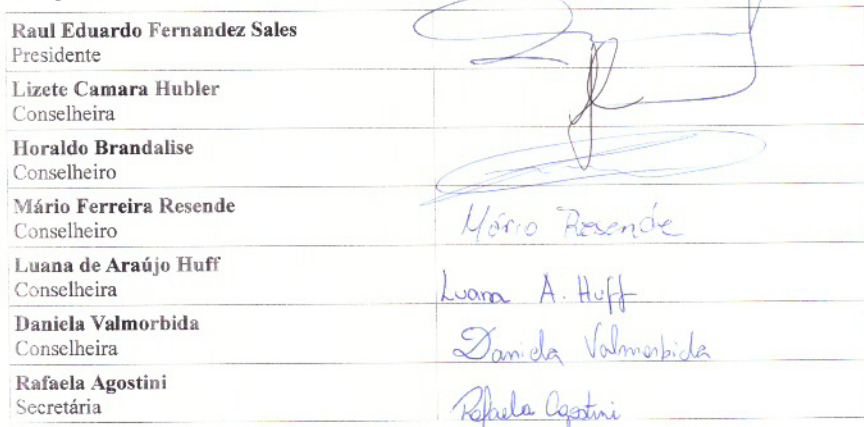 Raul Eduardo Fernandez Sales
Presidente
Lizete Camara Hubler
Conselheira
Horaldo Brandalise
Conselheiro
Mário Ferreira Resende
Conselheiro
Mário Resende
Luana de Araújo Huff
Conselheira
Luana A. Huff
Daniela Valmorbida
Conselheira
Daniela Valmorbida
Rafaela Agostini
Secretária
Rafaela Agostini